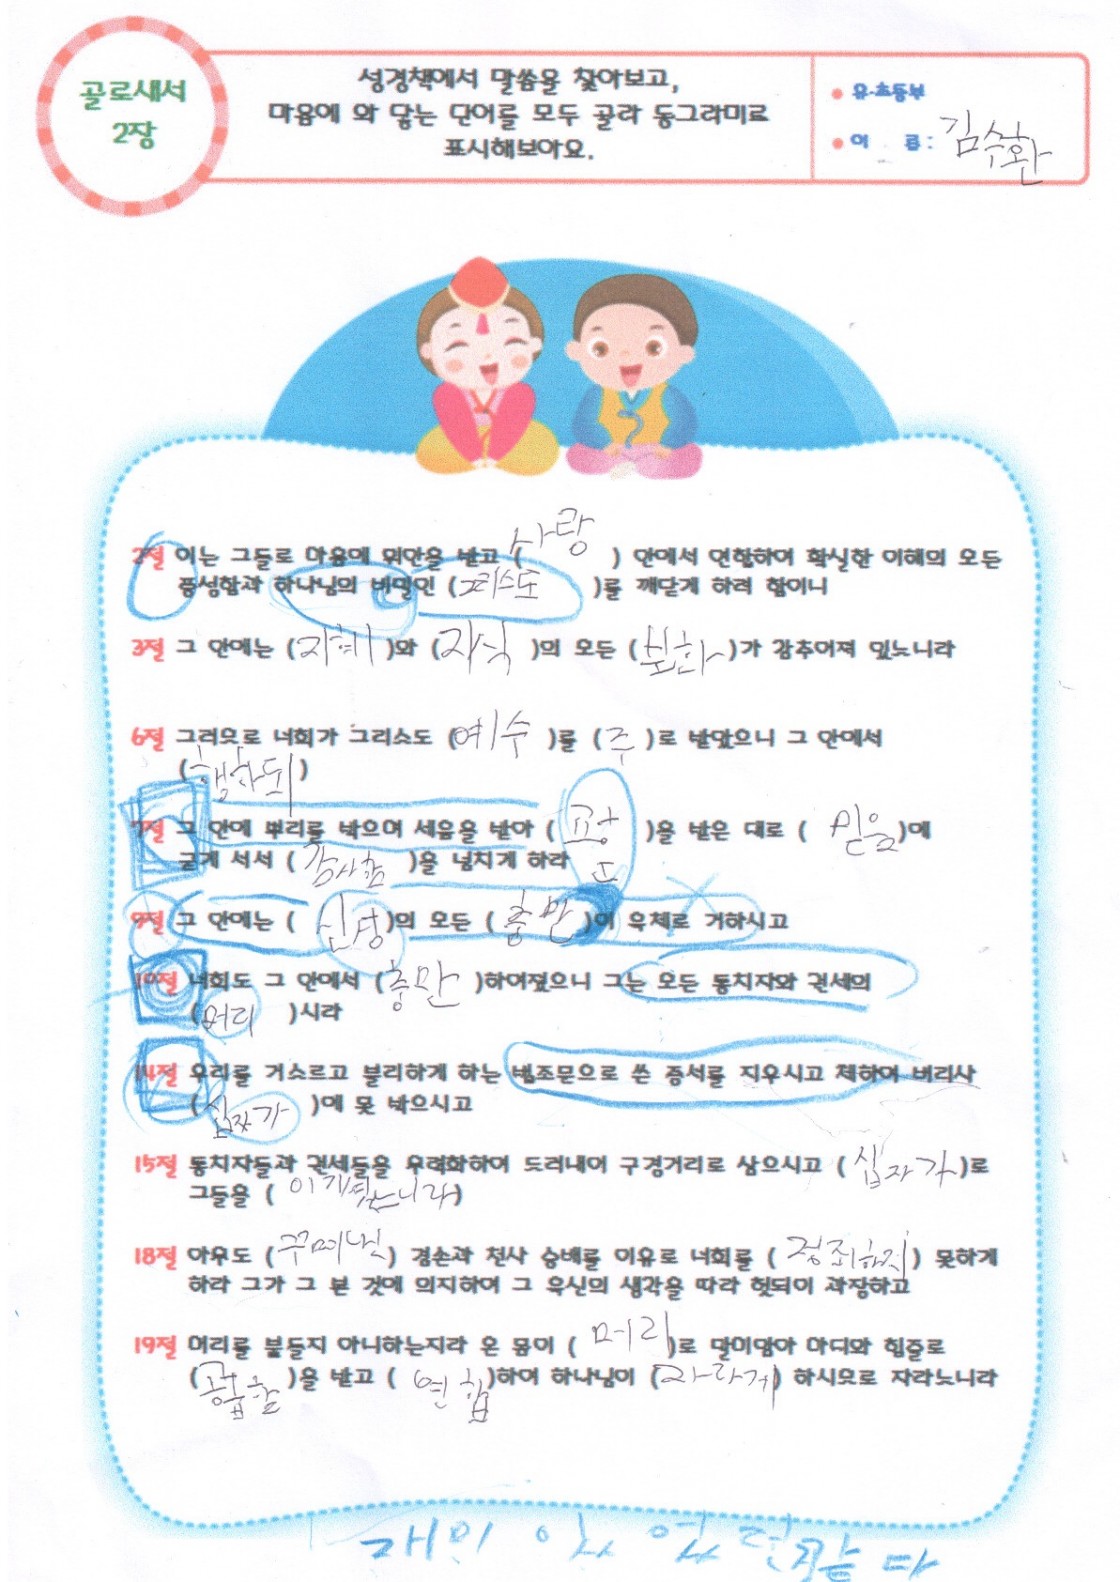 골로새서
2장
성경책에서 말씀을 찾아보고,
마음에 와 닿는 단어를 모두 골라 동그라미로
표시해보아요.
유·초등부
이 름 : 김수환
2절 이는 그들로 마음에 위안을 받고 ( 사랑 ) 안에서 연합하여 확실한 이해의 모든
풍성함과 하나님의 비밀인 (그리스도 )를 깨닫게 하려 함이니
3절 그 안에는 (지혜 )와 (지식 )의 모든 ( )가 감추어져 있느니라
6절 그러므로 너희가 그리스도 (예수 )를 (주 )로 받았으니 그 안에서
(행하되)
7절 그 안에 뿌리를 박으며 세움을 받아 ( )을 받은 대로 ( 믿음)에
굳게 서서 ( 감사함 )을 넘치게 하라
9절 그 안에는 ( 신성)의 모든 ( 충만 )이 육체로 거하시고
10절 너희도 그 안에서 (충만 )하여졌으니 그는 모든 통치자와 권세의
(머리 )시라
14절 우리를 거스르고 불리하게 하는 법조문으로 쓴 증서를 지우시고 제하여 버리사
(십자가 )에 못 박으시고
15절 통치자들과 권세들을 무력화하여 드러내어 구경거리로 삼으시고 ( 십자가)로
그들을 ( 이기셨느니라)
18절 아무도 (꾸며낸) 겸손과 천사 숭배를 이유로 너희를 ( 정죄하지) 못하게
하라 그가 그 본 것에 의지하여 그 육신의 생각을 따라 헛되이 과장하고
19절 머리를 붙들지 아니하는지라 온 몸이 ( 머리)로 말미암아 마디와 힘줄로
(공급함 )을 받고 ( 연합)하여 하나님이 (자라게) 하시므로 자라느니라